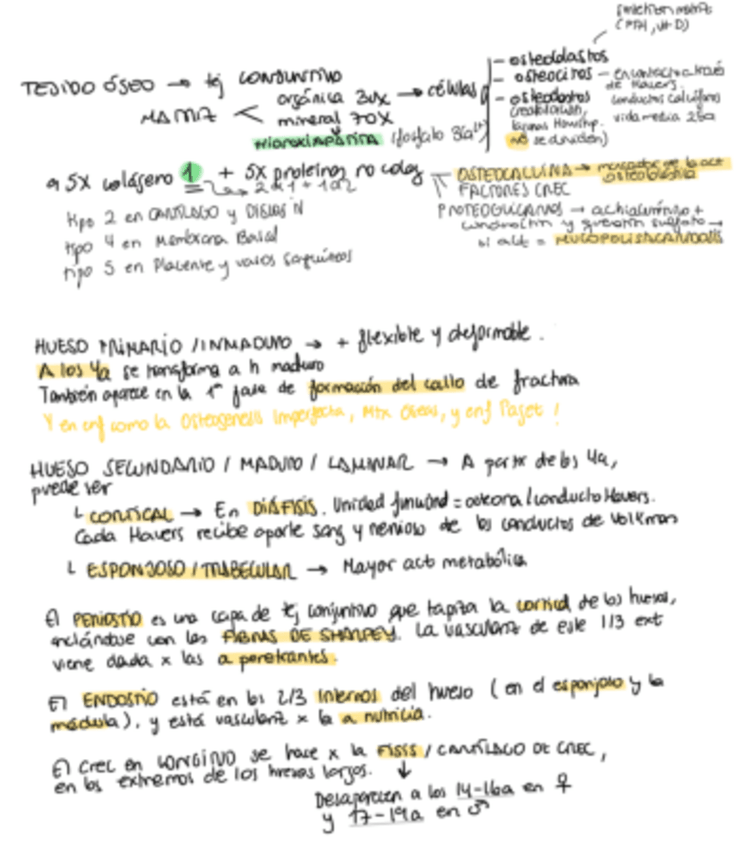 (PTH, vit D)
TEJIDO ÓSEO → tej CONJUNTIVO
MATRIZ < orgánica 30% → células
mineral 70%
HIDROXIAPATITA (fosfato
- osteoblastos
- osteocitos - en contacto a través de Havers.
- osteoclastos
conductos calcóforos
vida media 25a
NO se dividen)
95% colágeno 1 + 5% proteínas no colag
OSTEOCALCINA → marcador de la act osteoblástica
FACTORES CREC
PROTEOGLICANOS → ac hialurónico + condroitin y queratin sulfato →
si alt = MUCOPOLISACARIDOSIS
tipo 2 en CARTÍLAGO y DISCOS IV
tipo 4 en Membrana Basal
tipo 5 en Placenta y vasos sanguíneos
HUESO PRIMARIO / INMADURO → + flexible y deformable.
A los 4a se transforma a h maduro
También aparece en la 1ª fase de formación del callo de fractura
Y en enf como la Osteogenesis Imperfecta, Mtx Óseas, y enf Paget !
HUESO SECUNDARIO / MADURO / LAMINAR → A partir de los 4a,
puede ser
└ CORTICAL → En DIÁFISIS. Unidad funcional = osteona / conducto Havers.
Cada Havers recibe aporte sang y nervioso de los conductos de Volkman
└ ESPONJOSO / TRABECULAR → Mayor act metabólica
El PERIOSTIO es una capa de tej conjuntivo que tapiza la cortical de los huesos,
anclándose con las FIBRAS DE SHARPEY. La vascularız de este 1/3 ext
viene dada x las a perforantes.
El ENDOSTIO está en los 2/3 internos del hueso (en el esponjoso y la
médula), y está vasculariz x la a nutricia.
El Crec en LONGITUD se hace x la FISIS / CARTÍLAGO DE CREC,
en los extremos de los huesos largos. ↓
Desaparecen a los 14-16a en ♀
y 17-19a en ♂